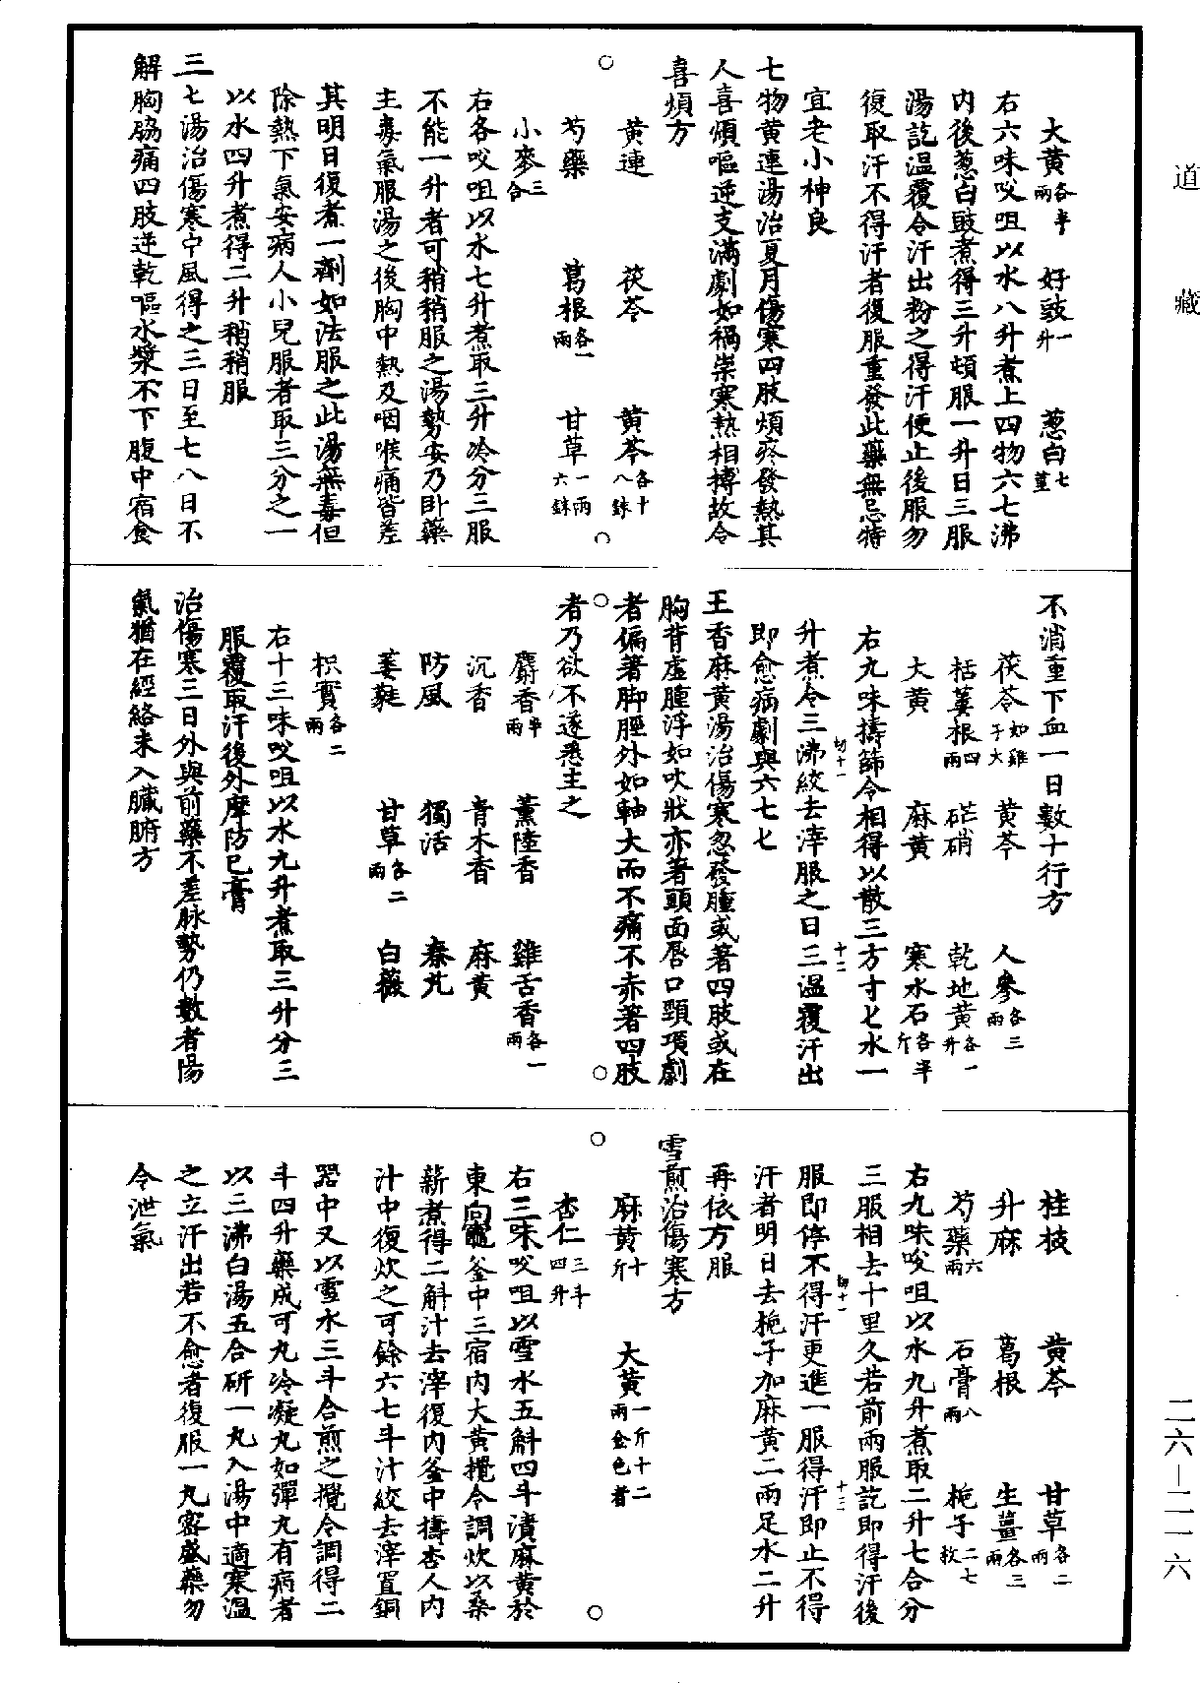 道藏
大黃各半兩 好豉一升 葱白七莖
右六味㕮咀以水八升煮上四物六七沸
內後葱白豉煮得三升頓服一升日三服
湯訖溫覆令汗出粉之得汗便止後服勿
復取汗不得汗者復服重發此藥無忌特
宜老小神良
七物黃連湯治夏月傷寒四肢煩疼發熱其
人喜煩嘔逆支滿劇如禍祟寒熱相搏故令
喜煩方
黃連 茯苓 黃芩各十八銖
芍藥 葛根各一兩 甘草一兩六銖
小麥三合
右各㕮咀以水七升煮取三升冷分三服
不能一升者可稍稍服之湯勢安乃卧藥
主毒氣服湯之後胸中熱及咽喉痛皆差
其明日復煮一劑如法服之此湯無毒但
除熱下氣安病人小兒服者取三分之一
以水四升煮得二升稍稍服
三七湯治傷寒中風得之三日至七八日不
解胸脇痛四肢逆乾嘔水漿不下腹中宿食
不消重下血一日數十行方
茯苓如雞子大 黃芩 人參各三兩
栝蔞根四兩 芒硝 乾地黃各一升
大黃 麻黃 寒水石各半斤
右九味擣篩令相得以散三方寸匕水一
升煮令三沸絞去滓服之日三溫覆汗出
即愈病劇與六七匕
王香麻黃湯治傷寒忽發腫或著四肢或在
胸背虛腫浮如吹狀亦著頭面唇口頸項劇
者偏著脚脛外如軸大而不痛不赤著四肢
者乃欲不遂悉主之
麝香半兩 薰陸香 雞舌香各一兩
沉香 青木香 麻黃
防風 獨活 秦艽
萎蕤 甘草各二兩 白薇
枳實各二兩
右十三味㕮咀以水九升煮取三升分三
服覆取汗後外摩防巳膏
治傷寒三日外與前藥不差脉勢仍數者陽
氣猶在經絡未入臟腑方
桂枝 黃芩 甘草各二兩
升麻 葛根 生薑各三兩
芍藥六兩 石膏八兩 梔子二七枚
右九味㕮咀以水九升煮取二升七合分
三服相去十里久若前兩服訖即得汗後
服即停不得汗更進一服得汗即止不得
汗者明日去梔子加麻黃二兩足水二升
再依方服
雪煎治傷寒方
麻黃十斤 大黃一斤十二兩金色者
杏仁三斗四升
右三味㕮咀以雪水五斛四斗漬麻黃於
東向竈釜中三宿內大黃攪令調炊以桑
薪煮得二斛汁去滓復內釜中擣杏人內
汁中復炊之可餘六七斗汁絞去滓置銅
器中又以雪水三斗合煎之攪令調得二
斗四升藥成可丸冷凝丸如彈丸有病者
以三沸白湯五合研一丸入湯中適寒溫
之立汗出若不愈者復服一丸密盛藥勿
令泄氣
二六—二一六